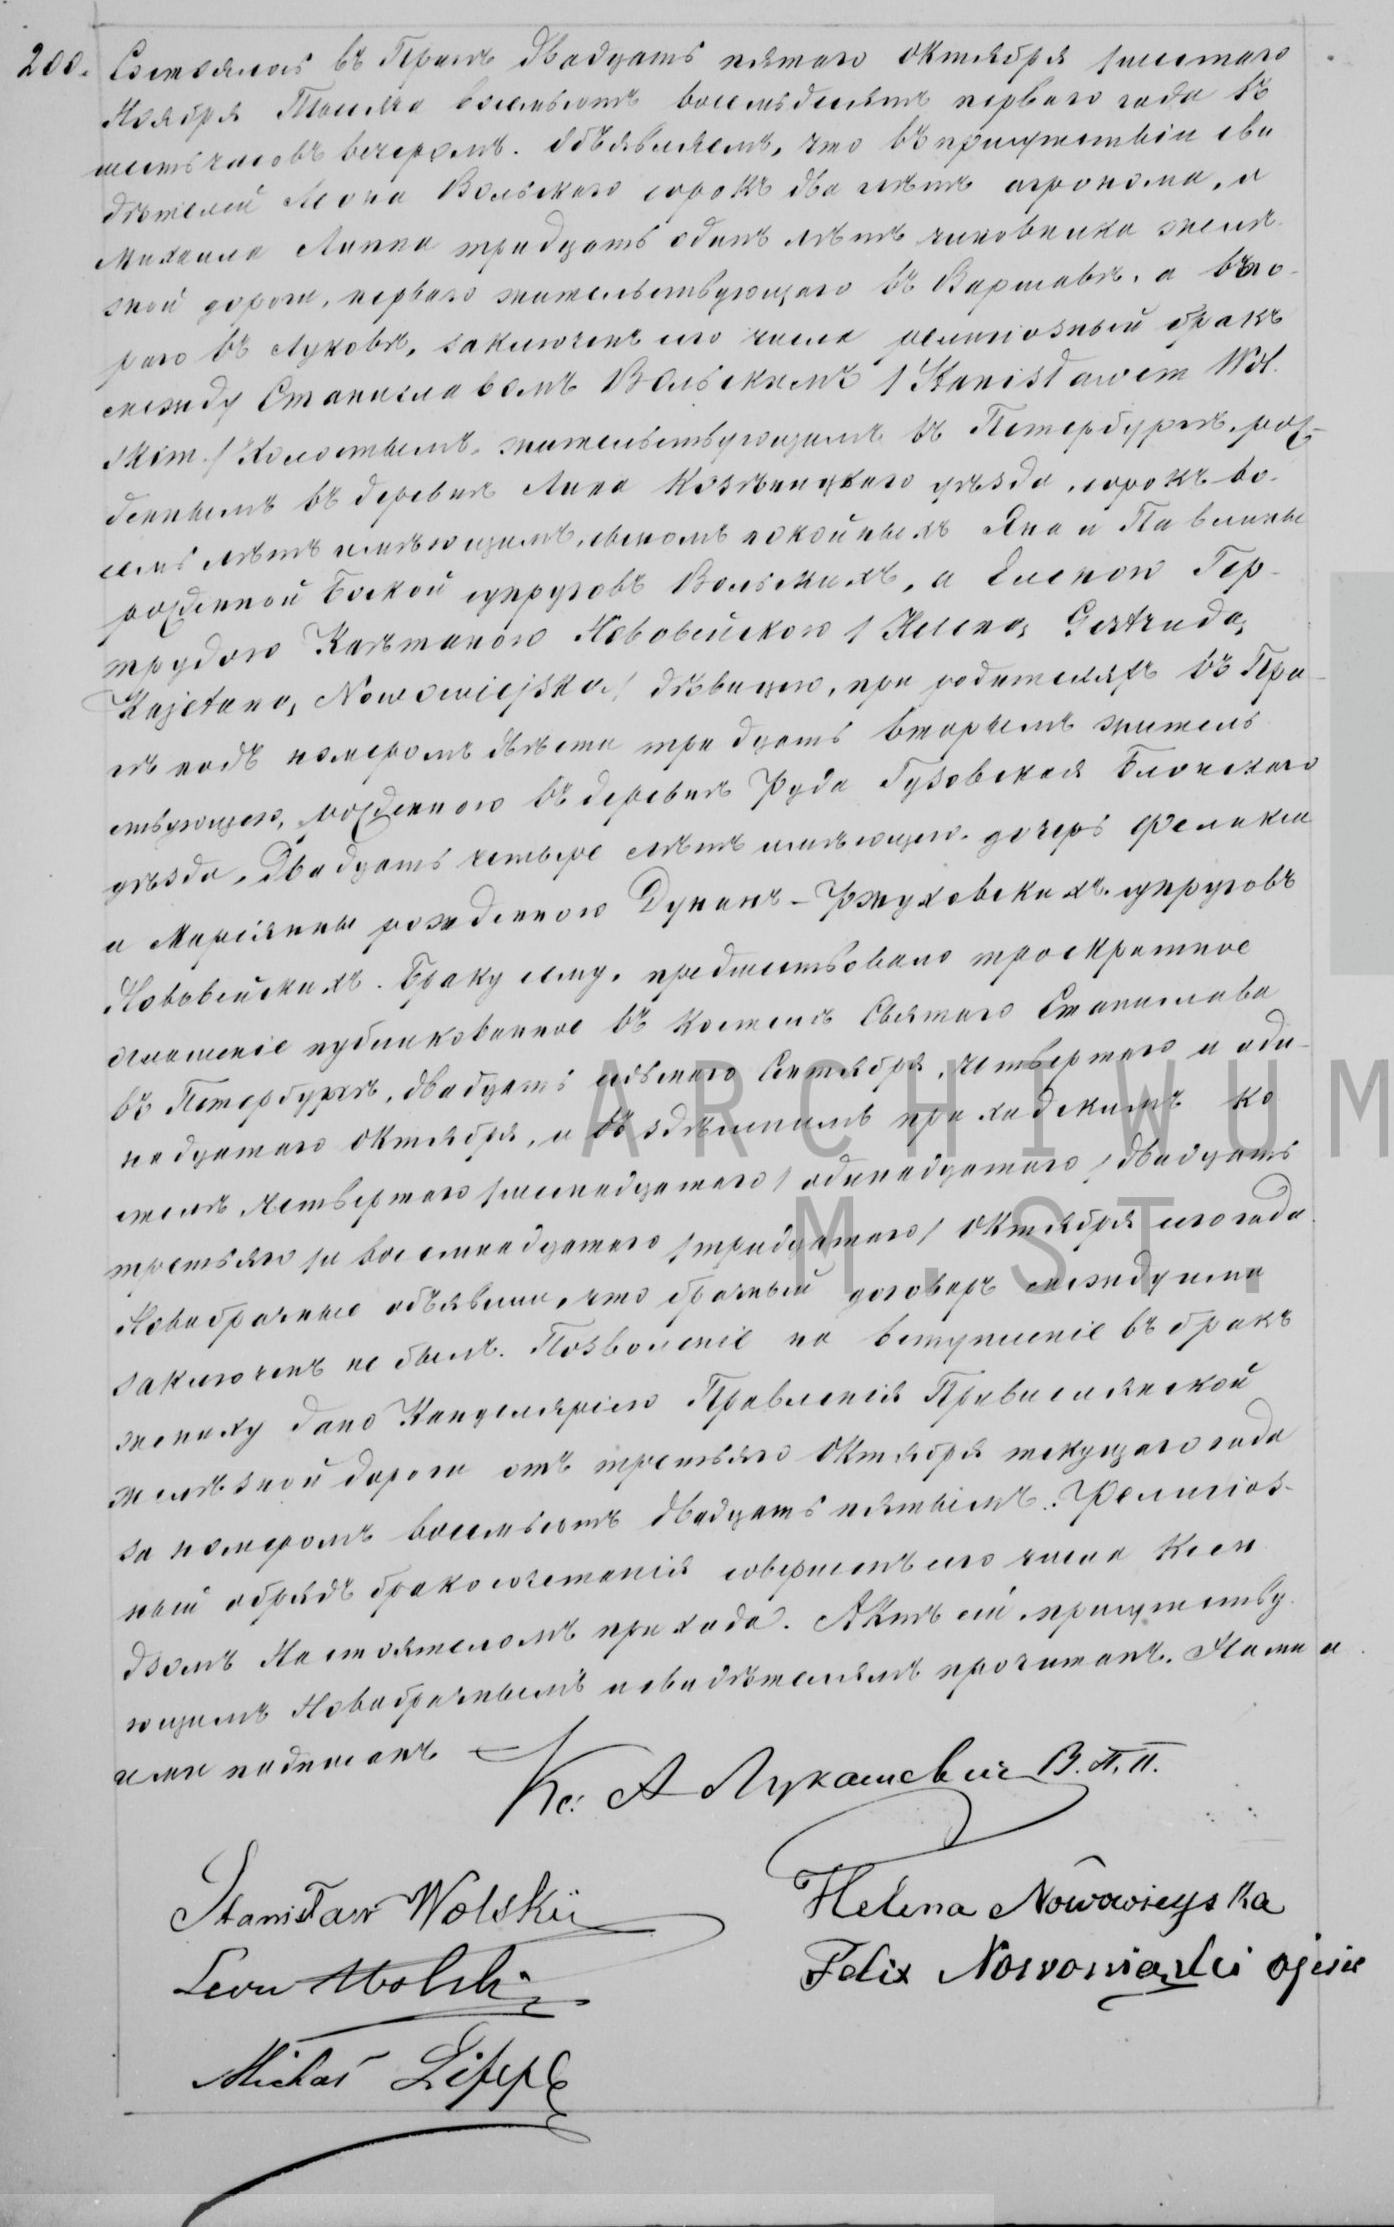 200. Состоялось въ Прагѣ двадцать пятаго Октября /шестаго
Ноября Тысяча восемьсотъ восемьдесятъ перваго года въ
шесть часовъ вечеромъ. Объявляемъ, что въ присутствіи сви
дѣтелей Леона Вольскаго сорокъ два лѣтъ агронома, и
Михаила Липпа тридцать одинъ лѣтъ чиновника желѣ
зной дороги, перваго жительствующаго въ Варшавѣ, а вто-
раго въ Луковѣ, заключенъ сего числа религіозный бракъ
между Станиславомъ Вольскимъ /Stanisławem Wol
skim/ Холостымъ, жительствующимъ въ Петербургѣ, рож-
деннымъ въ деревнѣ Липа Козѣницкаго уѣзда, сорокъ во-
семь лѣтъ имѣющимъ, сыномъ покойныхъ Яна и Павлины
рожденной Боской супруговъ Вольскихъ, и Еленою Гер-
трудою Каэтаною Нововейскою /Heleną Gertrudą
Kajetaną Nowowiejską/ дѣвицею, при родителяхъ въ Пра-
гѣ подъ номеромъ двѣсти тридцать вторымъ житель
ствующею, рожденною въ деревнѣ Руда Гузовская Блонскаго
уѣзда, двадцать четыре лѣтъ имѣющею, дочерь Феликса
и Маріянны рожденною Дунинъ-Ржуховскихъ супруговъ
Нововейскихъ. Браку сему, предшествовало троекратное
оглашеніе публикованное въ Костелѣ Святаго Станислава
въ Петербургѣ, двадцать седьмаго Сентября, четвертаго и оди-
надцатаго Октября, и въ здѣшнемъ приходскимъ ко
стелѣ четвертаго /шестнадцатаго/ одинадцатаго /двадцать
третьяго/ и восемнадцатаго /тридцатаго/ Октября сего года.
Новобрачные объявили, что брачный договоръ между ими
заключенъ не былъ. Позволеніе на вступленіе въ бракъ
жениху дано Канцеляріею Правленія Привислянской
желѣзной дороги отъ третьяго Октября текущаго года
за номеромъ восемьсотъ двадцать пятымъ. Религіоз-
ный обрядъ бракосочетанія совершенъ сего числа Ксен
дзомъ Настоятеломъ прихода. Актъ сій, присутству
ющимъ Новобрачнымъ и свидѣтелямъ прочитанъ, Нами и
ими подписанъ
Кс: А Лукашевич В. П. П.
Stanisław Wolski
Helena Nowowieyska
Leon Wolski
Felix Nowowiejski ojciec
Michał Lipp
ARCHIWUM
M. ST.